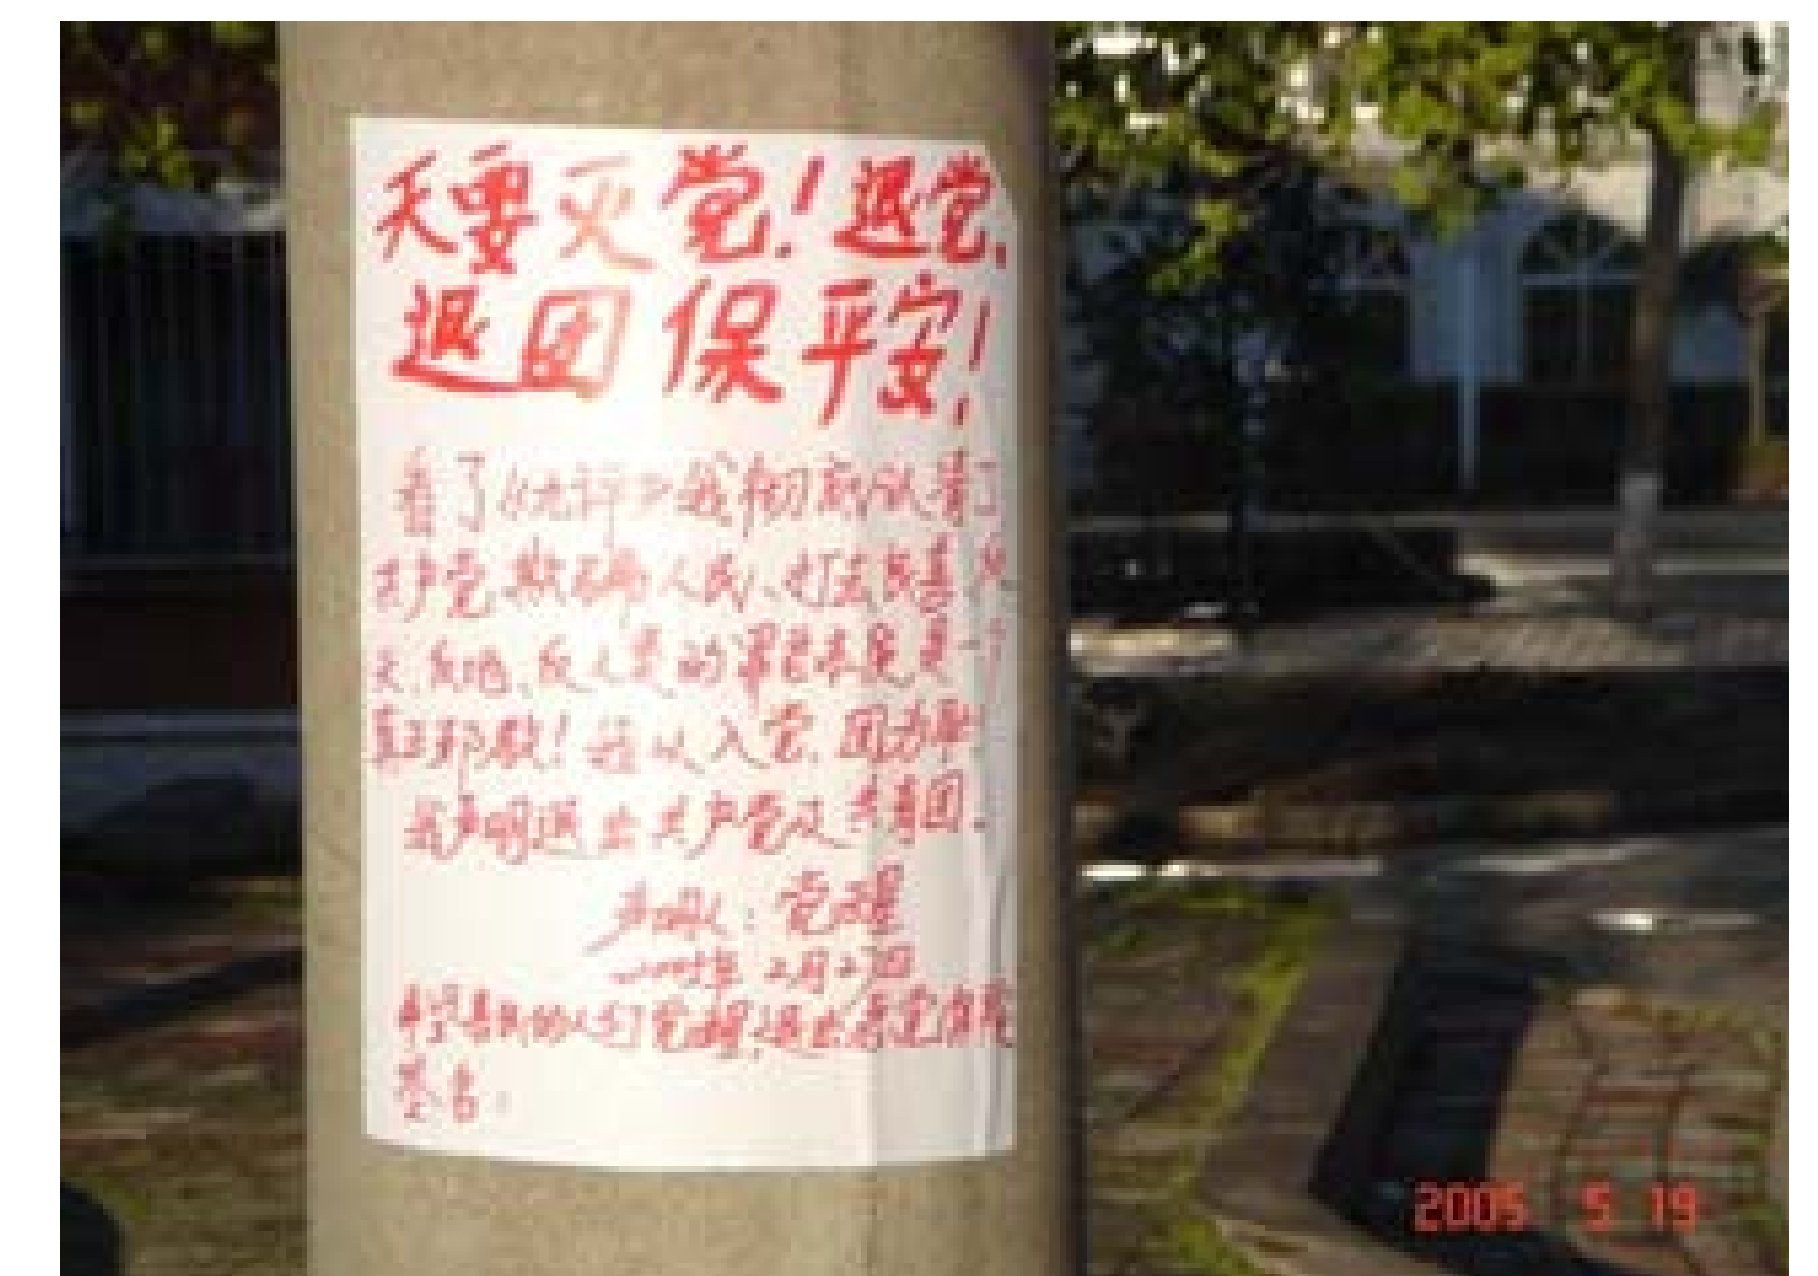 天要灭党！退党、
退团保平安！
看了《九评》我彻底认清了
共产党欺骗人民、打击良善、反
天、反地、反人类的罪恶本质是一个
真正邪教！我从入党、因为
我声明退出共产党及共青团。
声明人：觉醒
年2月23日
善良的人们觉醒，退出恶党
签名：
2005 5 19